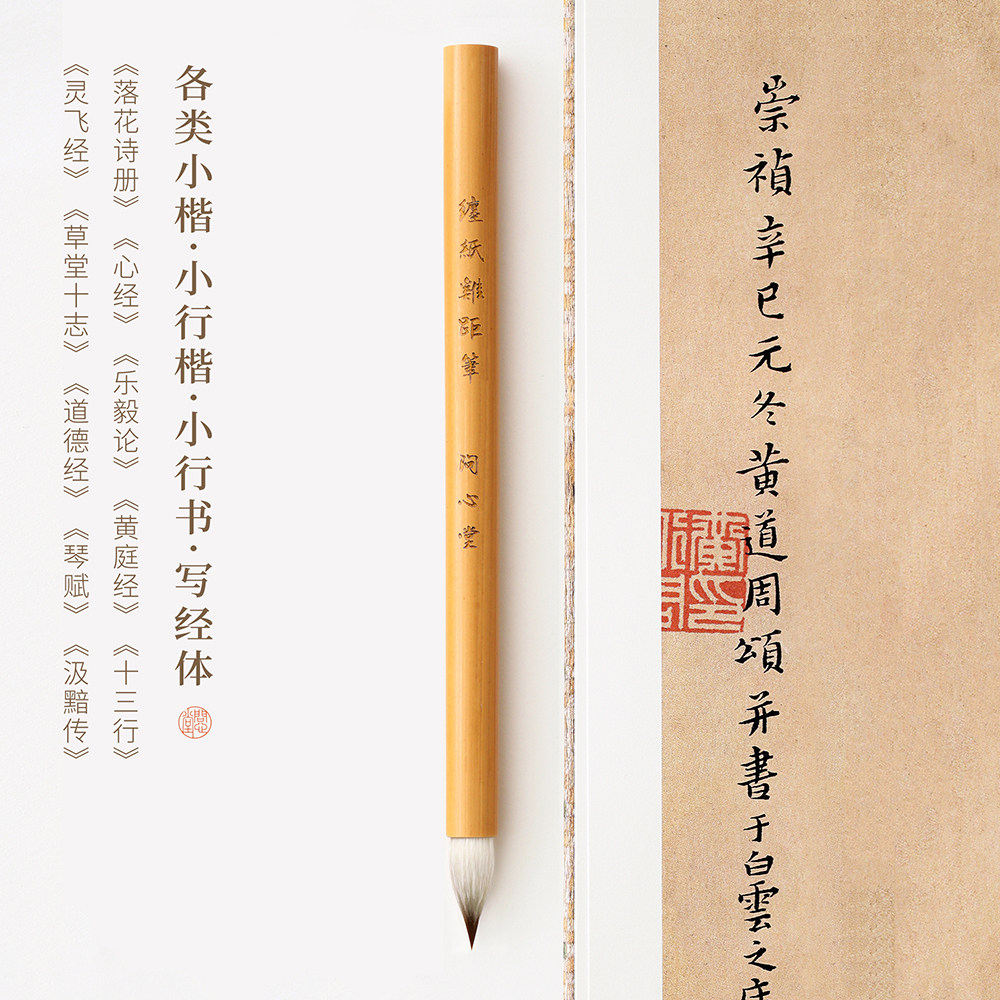 崇禎辛巳元冬黄道周頌并書于白雲之庫
纏紙雞距筆 问心堂
各类小楷·小行楷·小行书·写经体
《落花诗册》《心经》《乐毅论》《黄庭经》《十三行》
《灵飞经》《草堂十志》《道德经》《琴赋》《汲黯传》